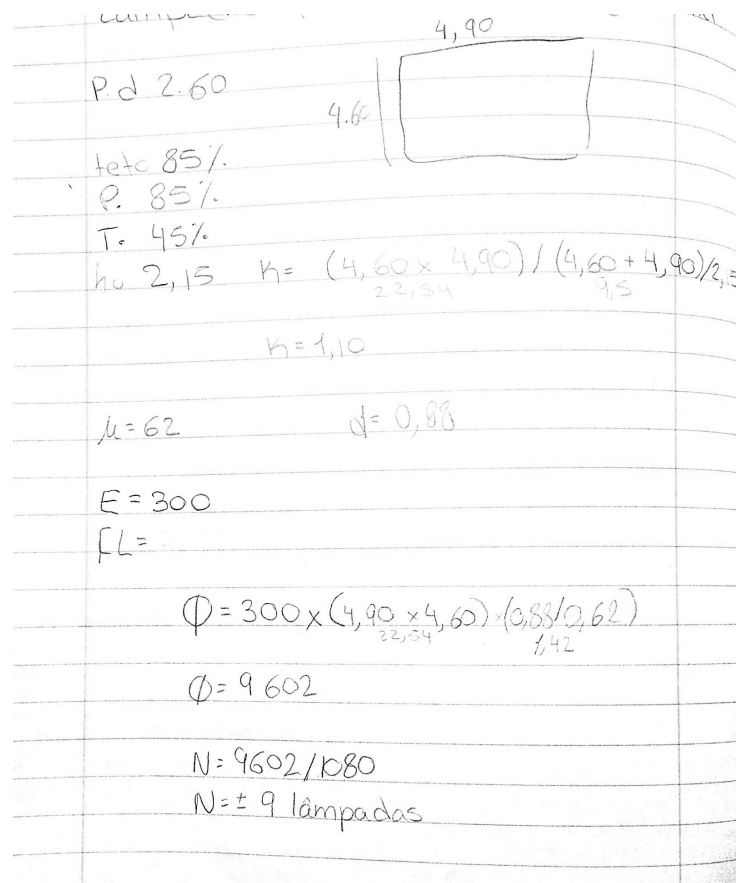 4,90
P.d 2.60
4.60
teto 85%
P. 85%
T. 45%
hu 2,15 K= (4,60 x 4,90) / (4,60 + 4,90)/2,15
22,54 9,5
K=1,10
μ=62 d= 0,88
E = 300
FL=
Φ = 300 x (4,90 x 4,60) x (0,88/0,62)
22,54 1,42
Φ= 9 602
N= 9602/1080
N= ± 9 lâmpadas